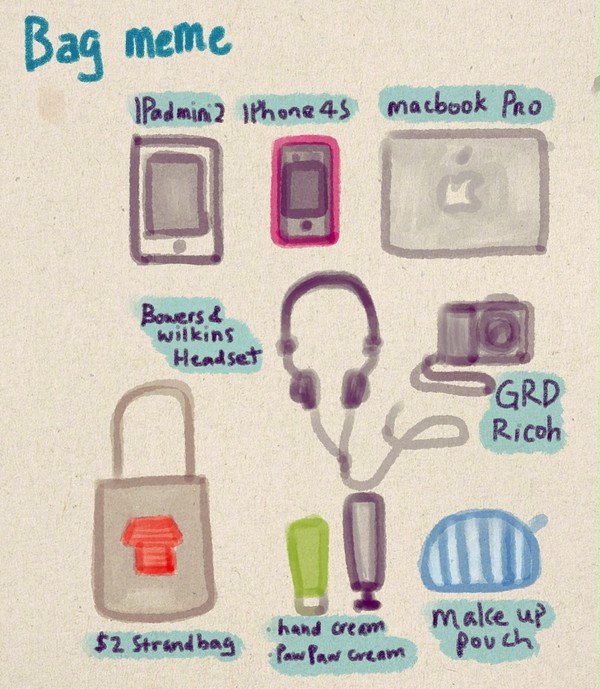 Bag meme
IPadmini2
IPhone4s
macbook Pro
Bowers &
Wilkins
Headset
GRD
Ricoh
$2 Strandbag
hand cream
PawPaw cream
Make up
pouch